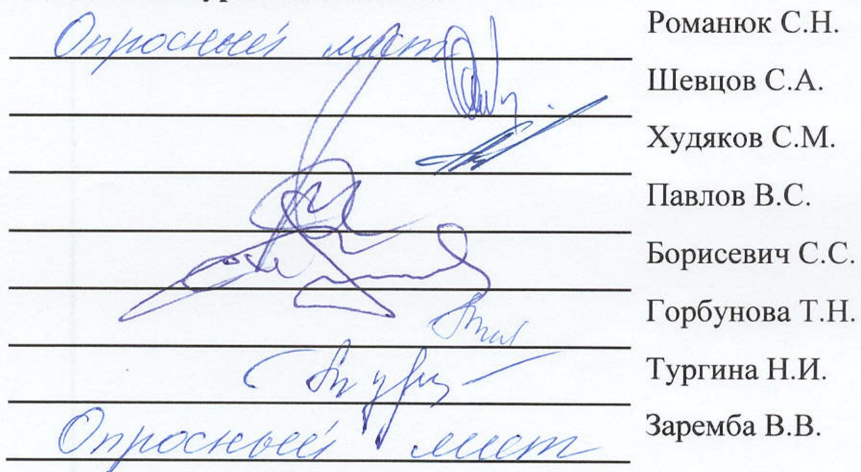 Опросный лист Романюк С.Н.
Шевцов С.А.
Худяков С.М.
Павлов В.С.
Борисевич С.С.
Горбунова Т.Н.
Тургина Н.И.
Опросный лист Заремба В.В.